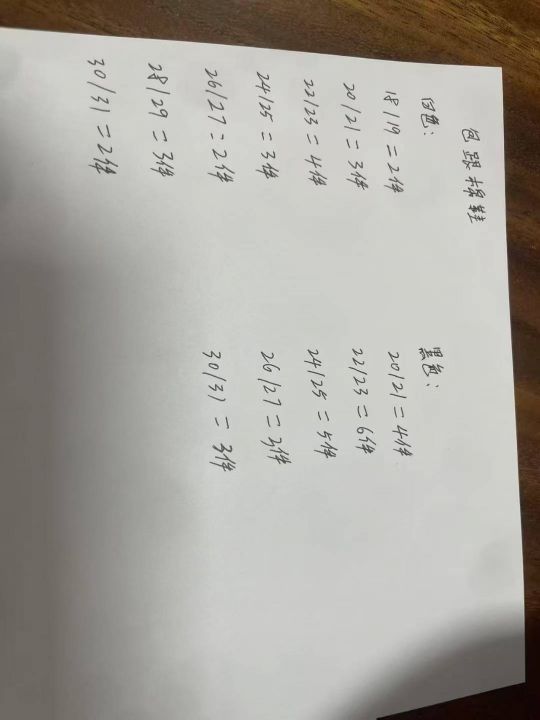 包跟棉鞋
白色:
18/19=2件
20/21=3件
22/23=4件
24/25=3件
26/27=2件
28/29=3件
30/31=2件
黑色:
20/21=4件
22/23=6件
24/25=5件
26/27=3件
30/31=3件